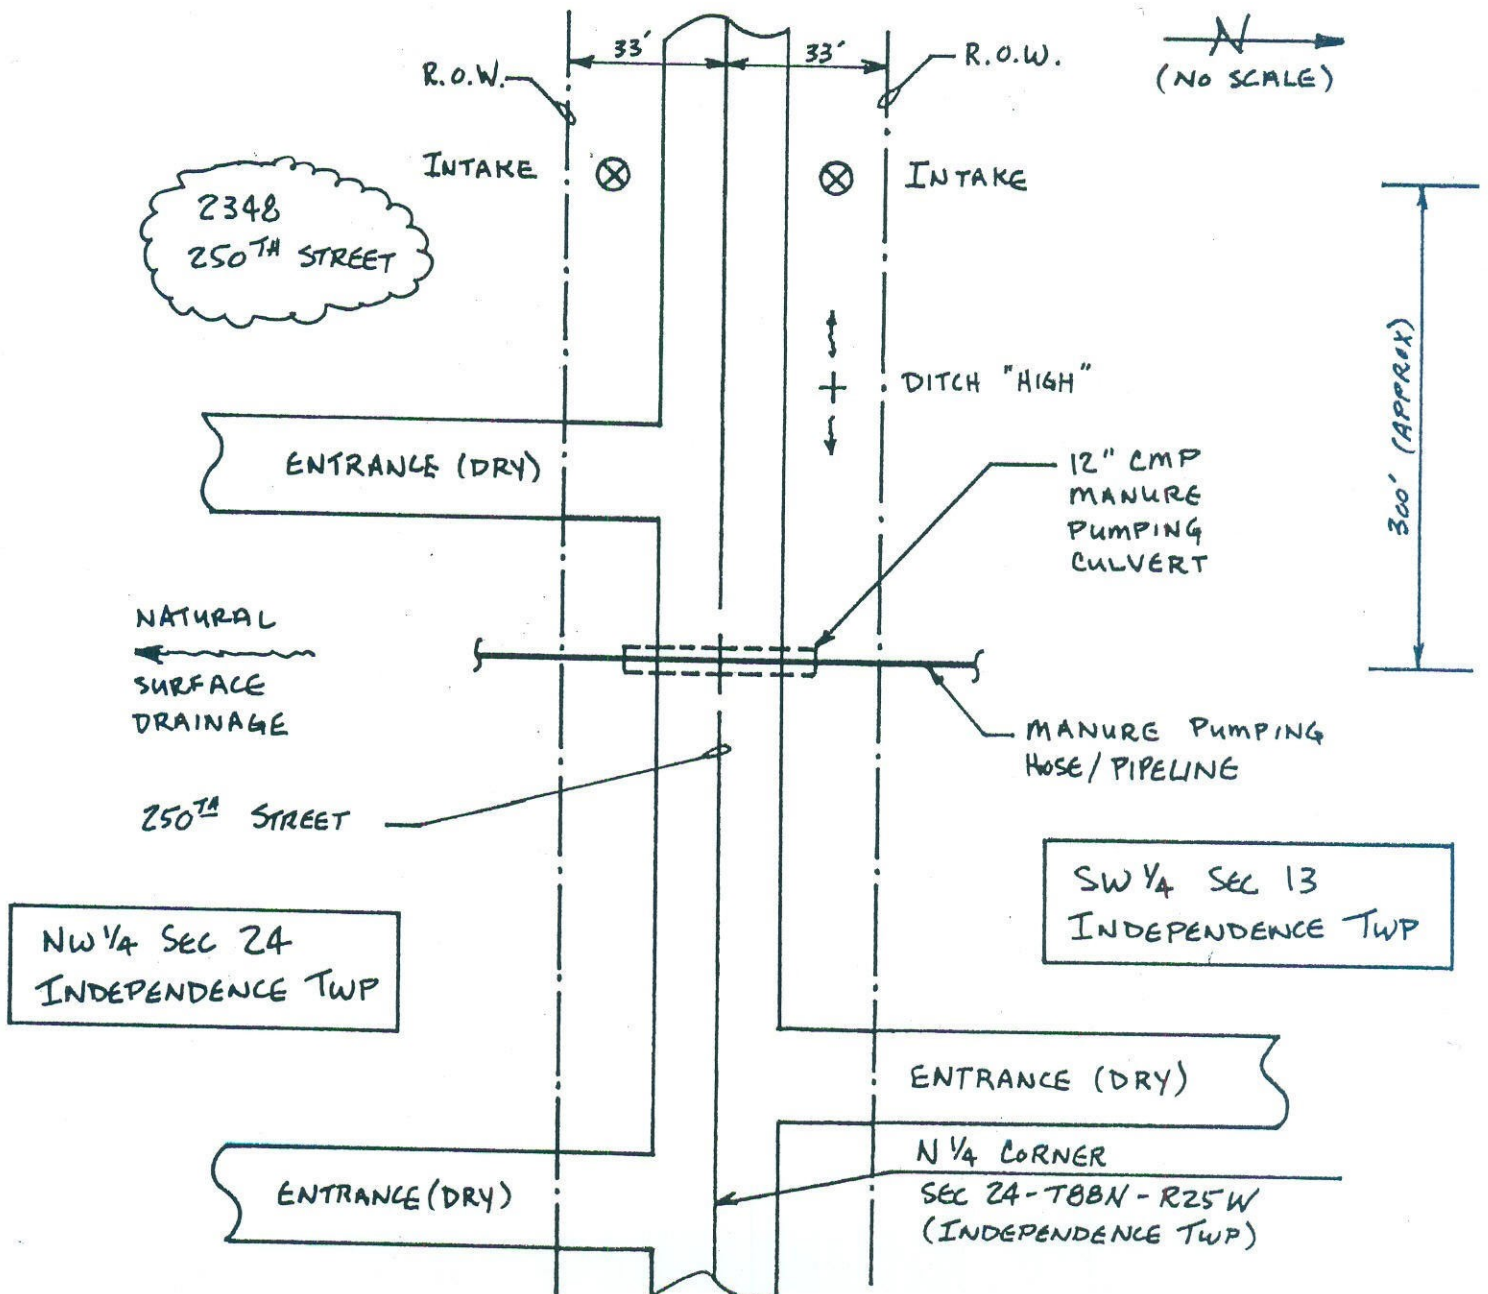 33'
33'
R.O.W.
R.O.W.
N
(NO SCALE)
INTAKE
INTAKE
2348
250TH STREET
DITCH "HIGH"
300' (APPROX)
ENTRANCE (DRY)
12" CMP
MANURE
PUMPING
CULVERT
NATURAL
SURFACE
DRAINAGE
MANURE PUMPING
HOSE/PIPELINE
250TH STREET
SW 1/4 SEC 13
INDEPENDENCE TWP
NW 1/4 SEC 24
INDEPENDENCE TWP
ENTRANCE (DRY)
N 1/4 CORNER
SEC 24-T88N-R25W
(INDEPENDENCE TWP)
ENTRANCE (DRY)